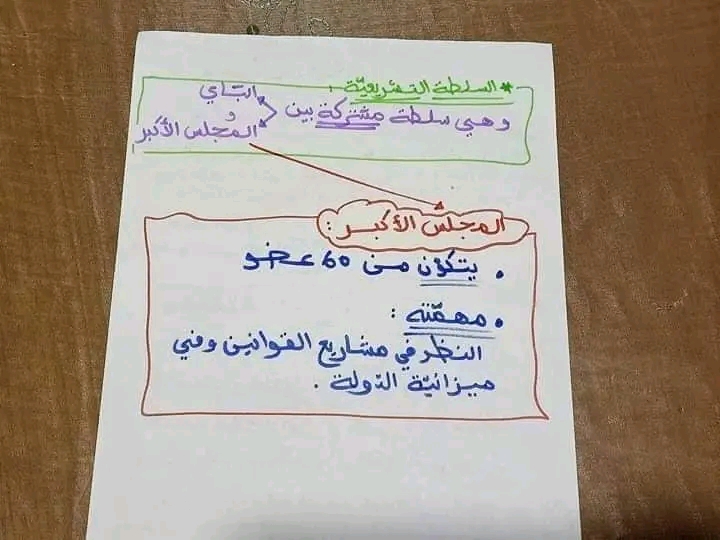 * السلطة التشريعيّة :
وهي سلطة مشتركة بين
الباي
و
المجلس الأكبر
المجلس الأكبر :
• يتكوّن من 60 عضو
• مهمّته :
النظر في مشاريع القوانين وفي
ميزانيّة الدّولة .